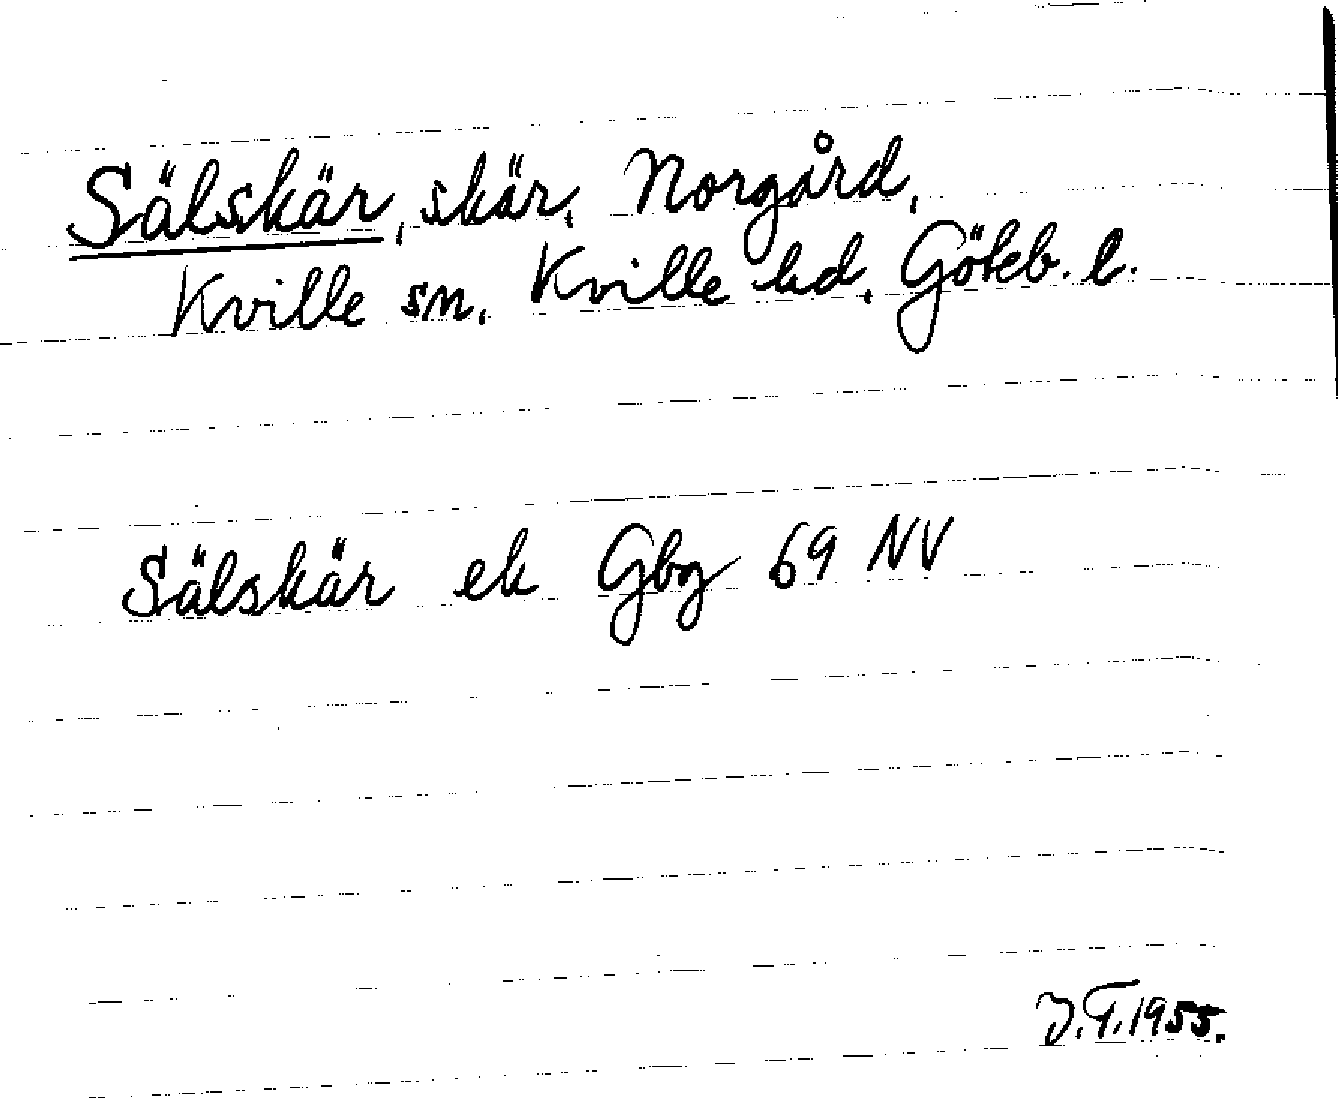 Sälskär, skär, Norgård,
Kville sn. Kville hd. Göteb. l.
Sälskär ek Gbg 69 NV
J.T. 1955.